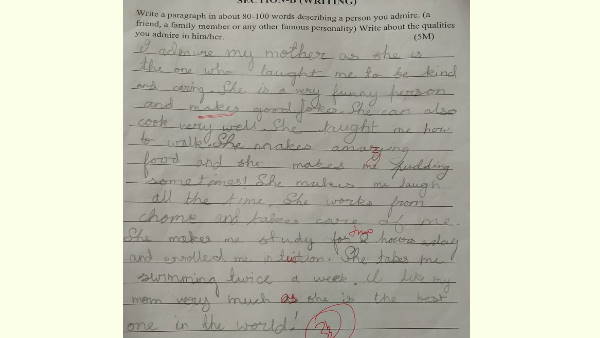 SECTION-B (WRITING)
Write a paragraph in about 80-100 words describing a person you admire. (a
friend, a family member or any other famous personality) Write about the qualities
you admire in him/her. (5M)
I admire my mother as she is
the one who taught me to be kind
and caring. She is a very funny person
and makes good jokes. She can also
cook very well. She taught me how
to walk. She makes amazing
food and she makes me pudding
sometimes! She makes me laugh
all the time. She works from
home and takes care of me.
She makes me study for two hours a day
and enrolled me in tuition. She takes me
swimming twice a week. I like my
mom very much as she is the best
one in the world!